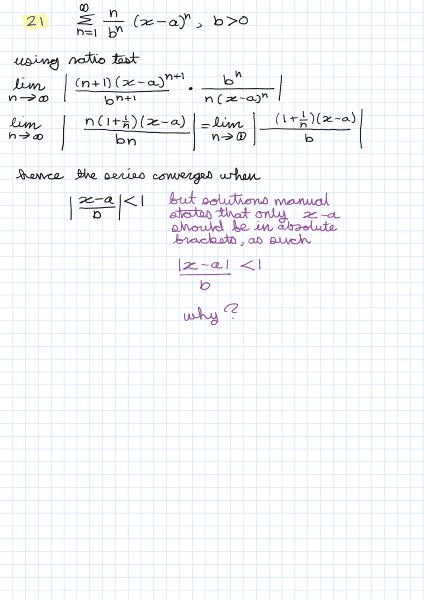 21 ∞ Σ n=1 n/bⁿ (x-a)ⁿ, b>0
using ratio test
lim n→∞ | (n+1)(x-a)ⁿ⁺¹ / bⁿ⁺¹ · bⁿ / n(x-a)ⁿ |
lim n→∞ | n(1+1/n)(x-a) / bn | = lim n→∞ | (1+1/n)(x-a) / b |
hence the series converges when
| x-a / b | < 1
but solutions manual
states that only x-a
should be in absolute
brackets, as such
|x-a| / b < 1
why?